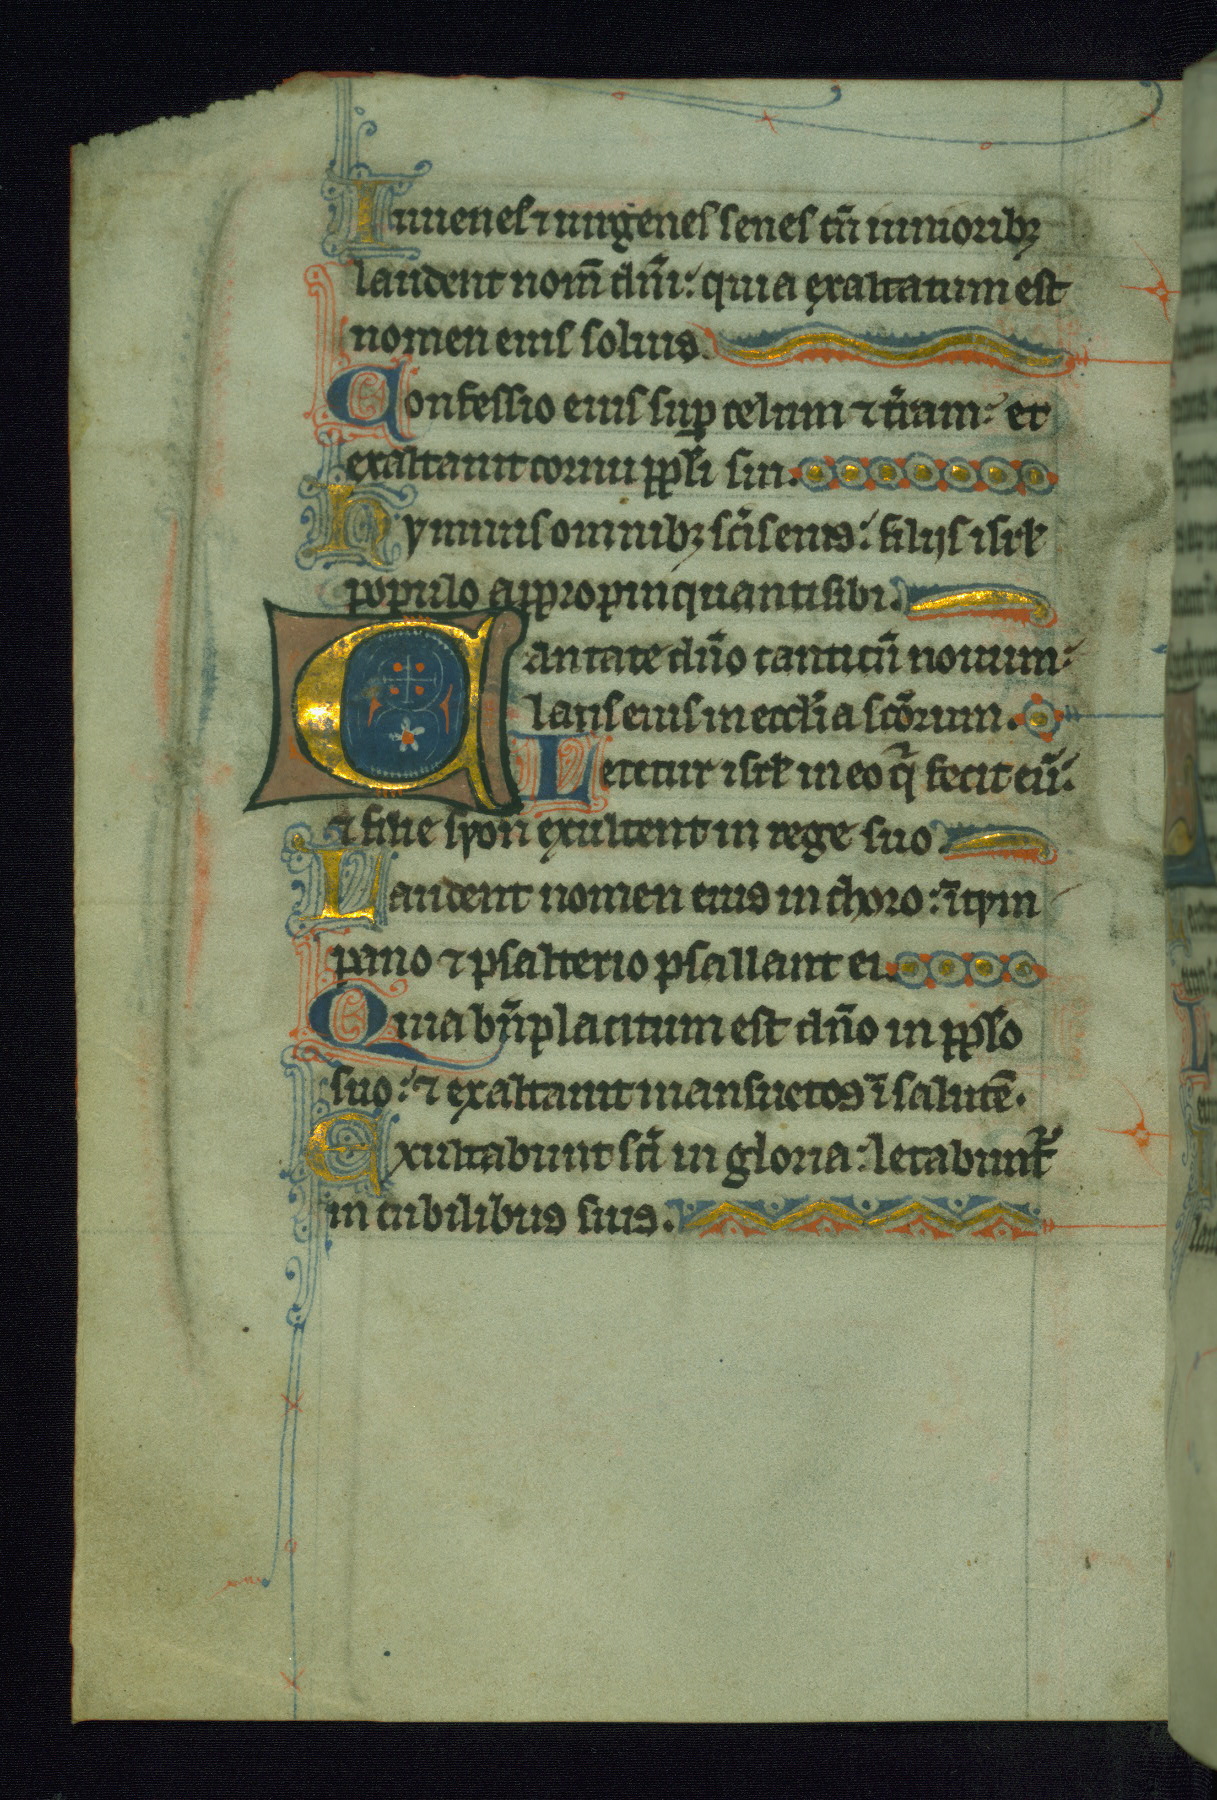 Iuuenes ⁊ uirgenes senes cũ iunioribꝫ
laudent nom̃ dñi: quia exaltatum est
nomen eius solius.
Confessio eius suꝑ celum ⁊ t̃ram: et
exaltauit cornu ppl̃i sui.
Hymnus omnibꝫ sc̃is eius: filijs isrł
populo appropinquanti sibi.
Cantate dño canticũ nouum:
laus eius in eccl̃ia sc̃orum.
Letetur isrł in eo q̃ fecit eũ:
⁊ filie syon exultent in rege suo.
Laudent nomen eius in choro: ĩ tym
pano ⁊ psalterio psallant ei.
Quia bñplacitum est dño in pplo
suo: ⁊ exaltauit mansuetos ĩ salutẽ.
Exultabunt sc̃i in gloria: letabunt᷑
in cubilibus suis.